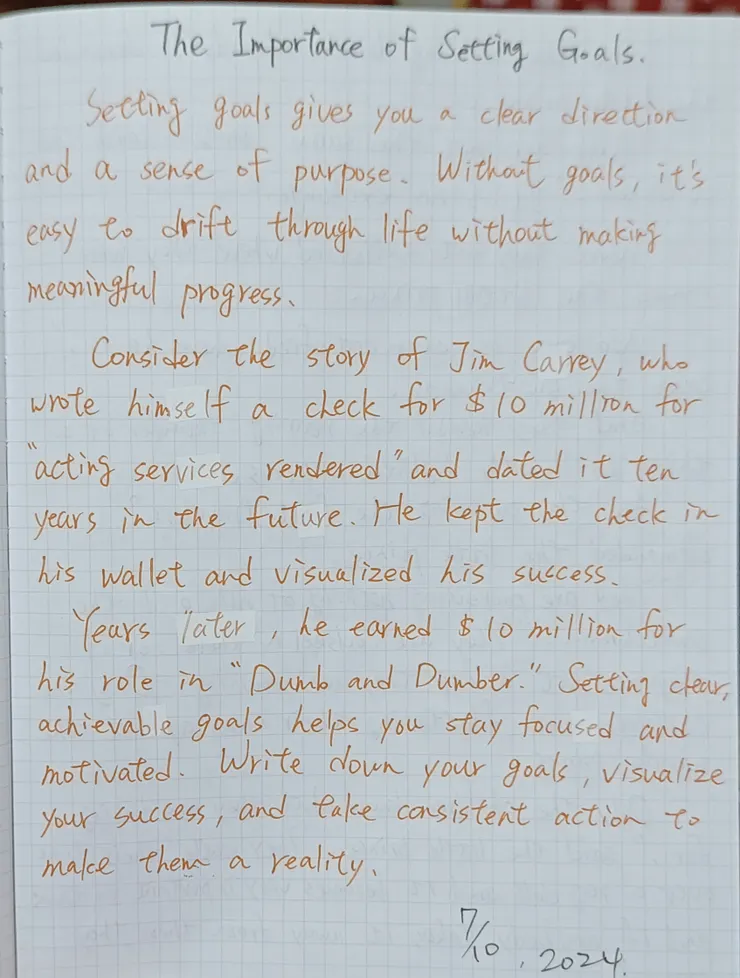 The Importance of Setting Goals.
Setting goals gives you a clear direction
and a sense of purpose. Without goals, it's
easy to drift through life without making
meaningful progress.
Consider the story of Jim Carrey, who
wrote himself a check for $10 million for
"acting services rendered" and dated it ten
years in the future. He kept the check in
his wallet and visualized his success.
Years later, he earned $10 million for
his role in "Dumb and Dumber." Setting clear,
achievable goals helps you stay focused and
motivated. Write down your goals, visualize
your success, and take consistent action to
make them a reality.
7/10, 2024